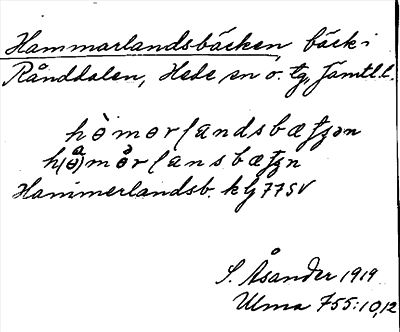 Hammarlandsbäcken, bäck i
Rånddalen, Hede sn o. tg, Jämtl. l.
hòmorlandsbæʈʂən
h(ə̊)mə̊rlansbæʈʂn
Hammerlandsb. kbl 77 SV
S. Åsander 1919
Ulma 755:10,12